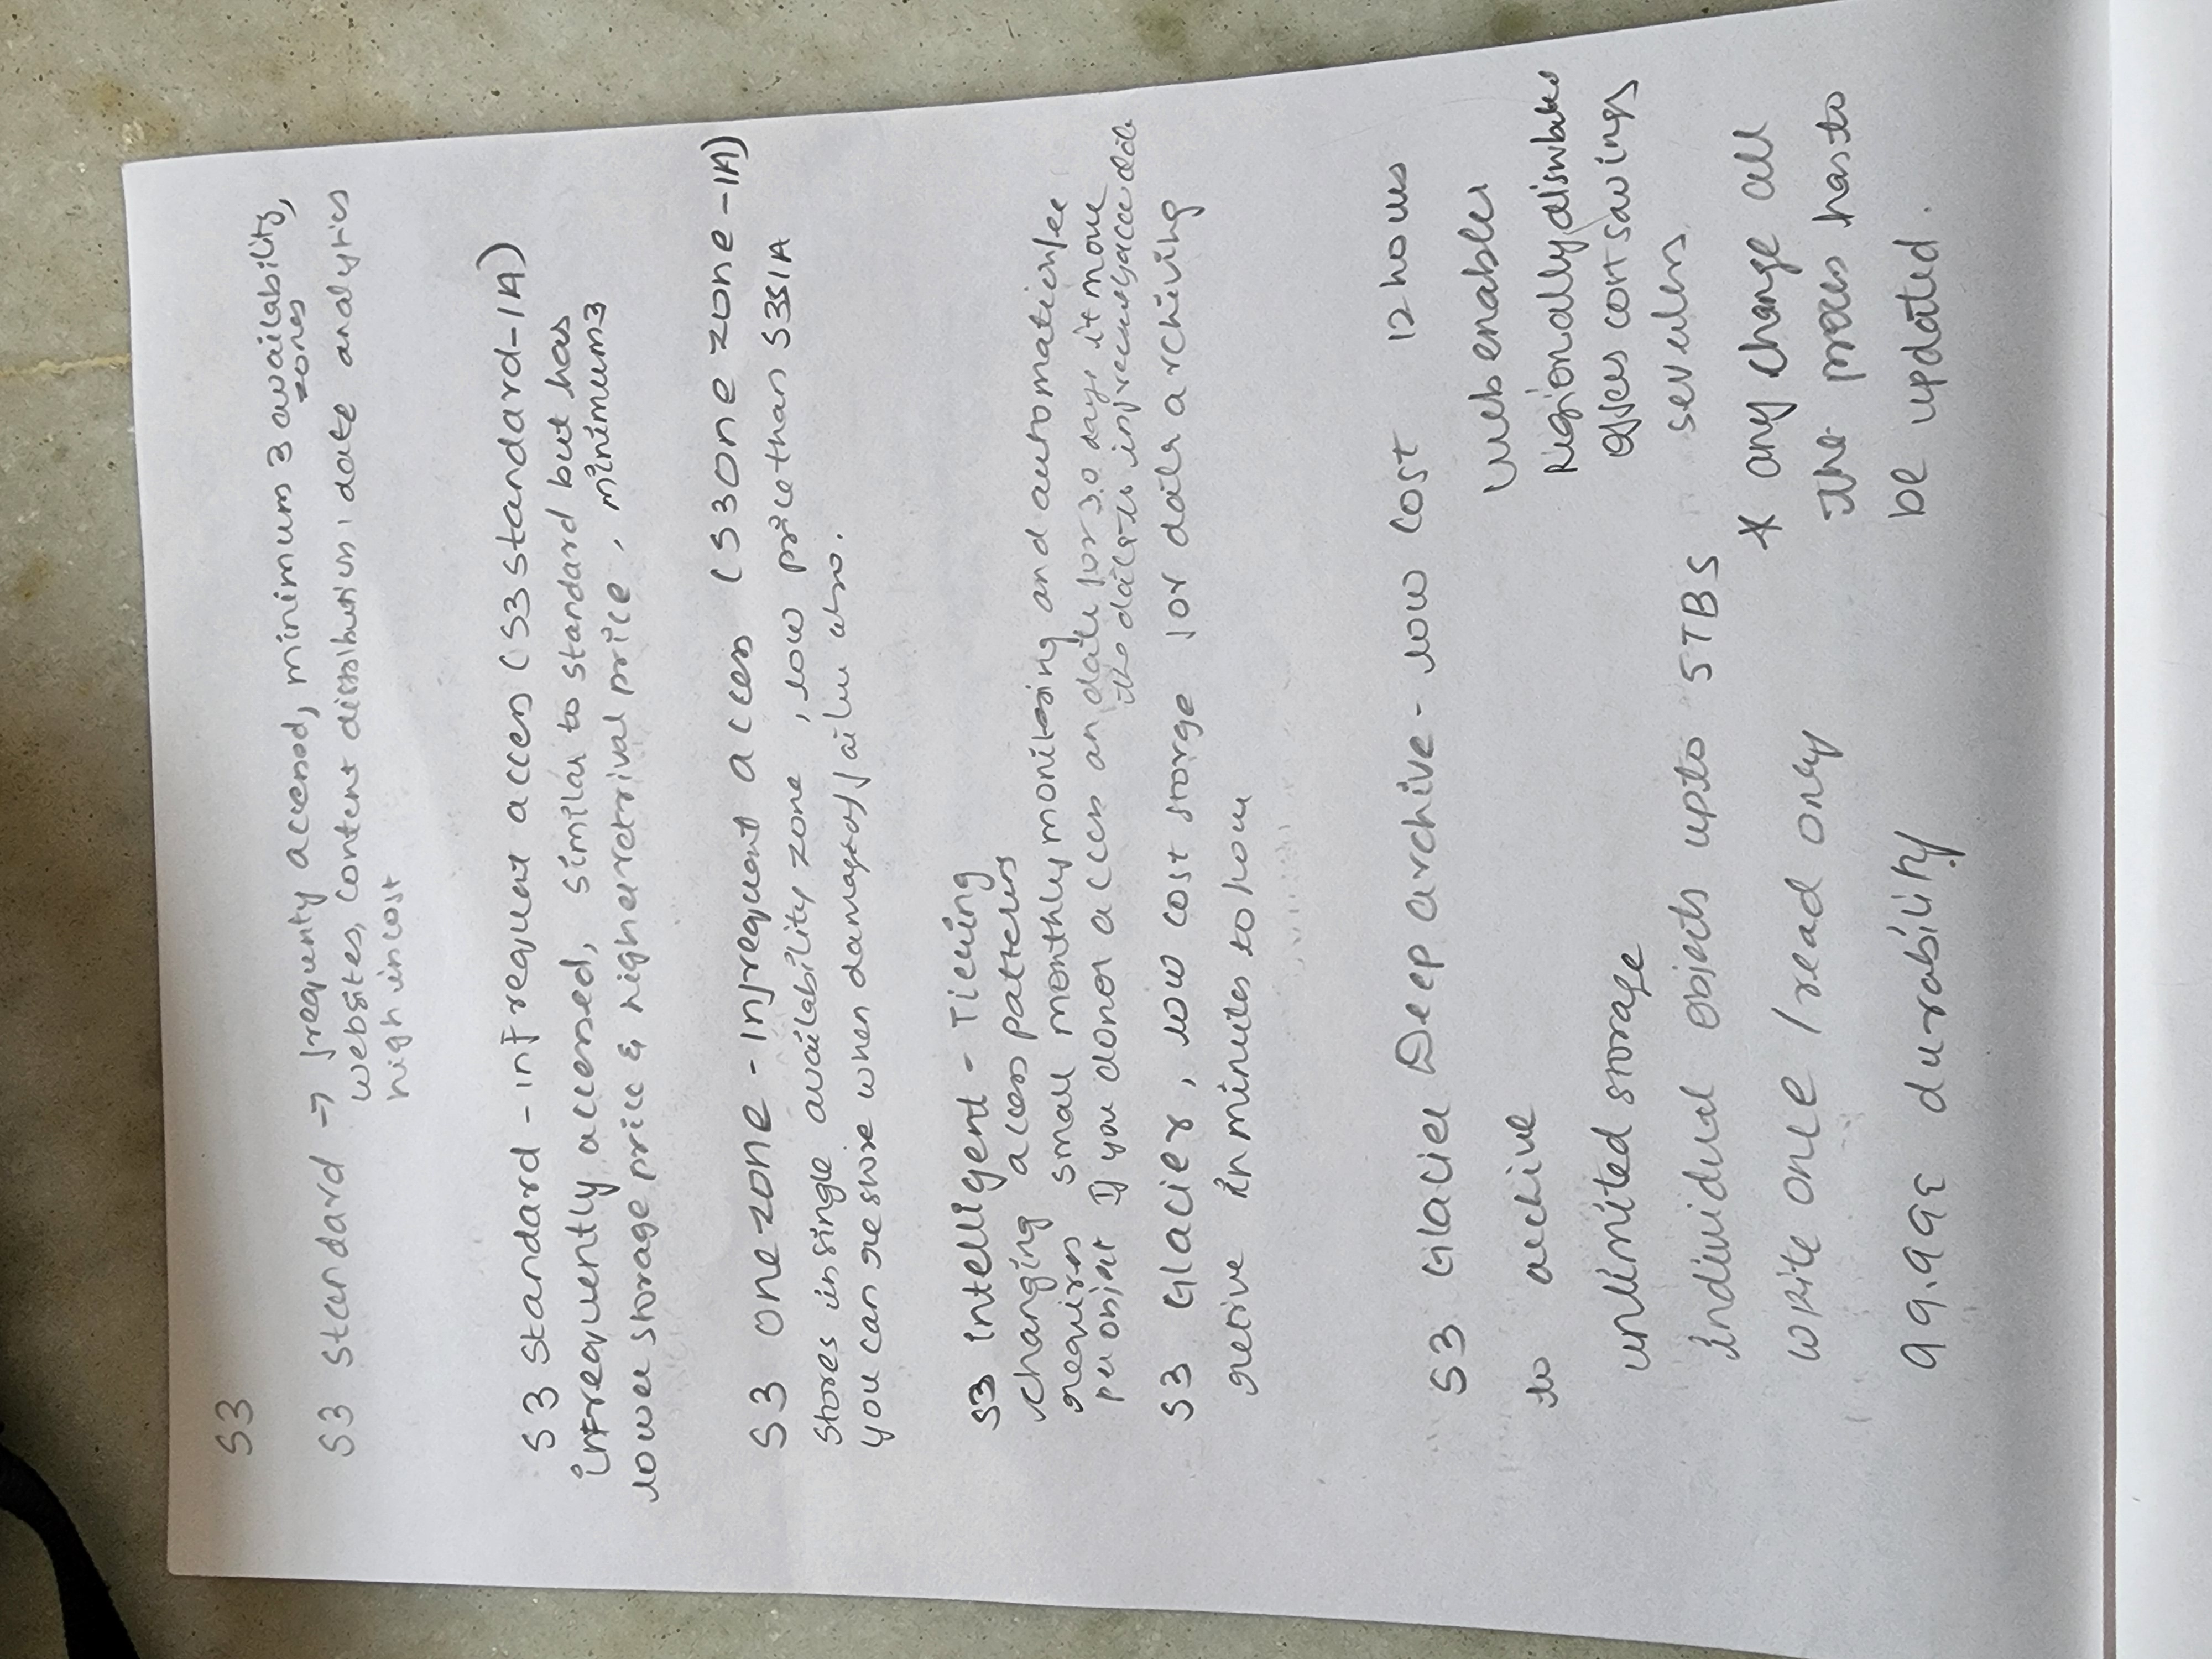 S3
S3 standard → frequnty accessed, minimum 3 availability zones,
websites, content distribution, date analytics
high in cost
S3 standard - infrequent access (S3 standard-IA)
infrequently accessed, similar to standard but has
lower storage price & higher retrival price, minimum 3
S3 one zone - Infrequent access (S3 one zone - IA)
stores in single availability zone, low price than S3SIA
you can restore when damage of failure also.
S3 intelligent - Tiering
changing access patterns
requires small monthly monitoring and automation fee
per object If you donot access an date for 30 days it move
the data to infrequently
S3 Glacier, low cost storge for data archiving
retive in minutes to hour
S3 Glacier Deep archive - low cost 12 hours
to archive
unlimited storage
individual objects upto 5TBS
write once / read only
99.99% durability
web enabler
Regionally
offers cost savings
severless
* any change all
the process has to
be updated.